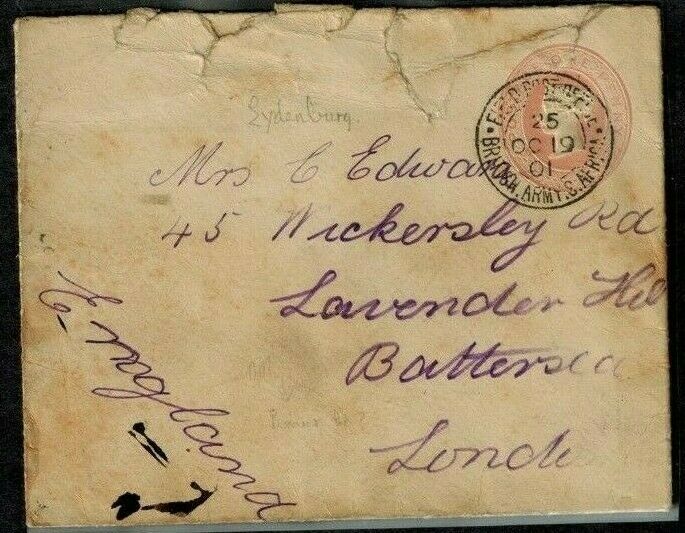 FIELD POST OFFICE
25
OC 19
01
BR. ARMY S. AFRICA
Lydenburg.
Mrs C Edwards
45 Wickersley Rd
Lavender Hill
Battersea
London
England